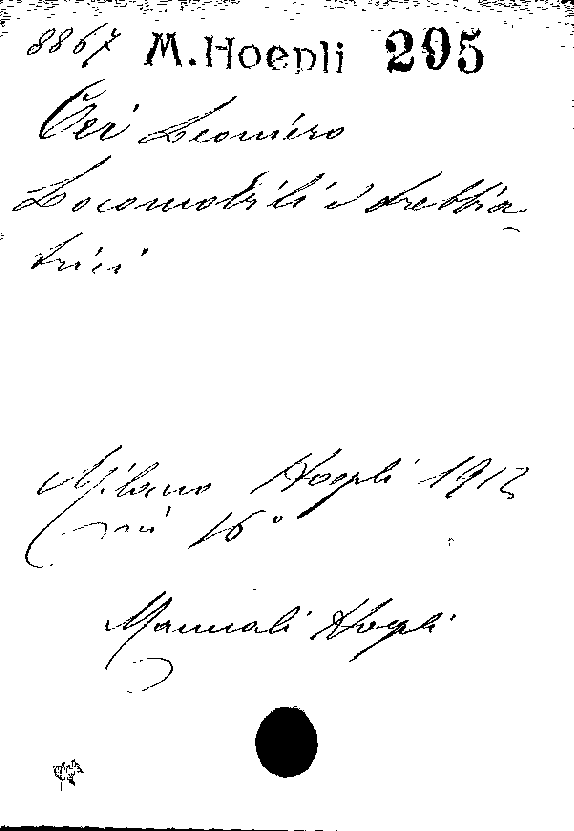 8867 M. Hoepli 295
Cei Leoniero
Locomobili e trebbia
trici
Milano Hoepli 1912
in 16°
Manuali Hoepli